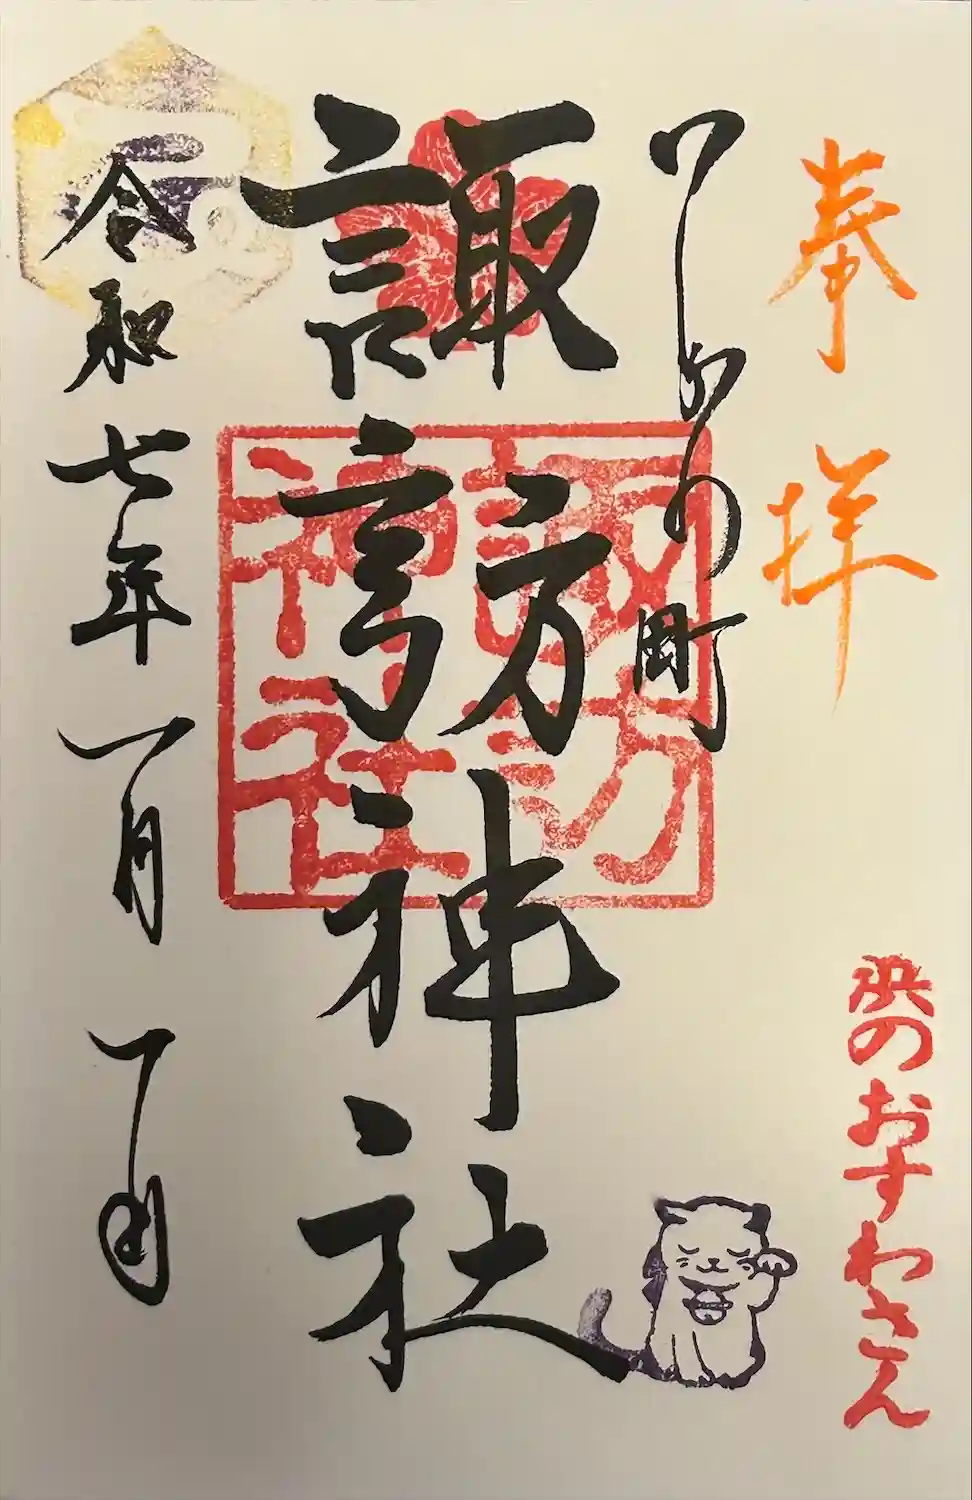 奉拝
浜のおすわさん
町
諏訪神社
諏訪
神社
令和七年一月一日